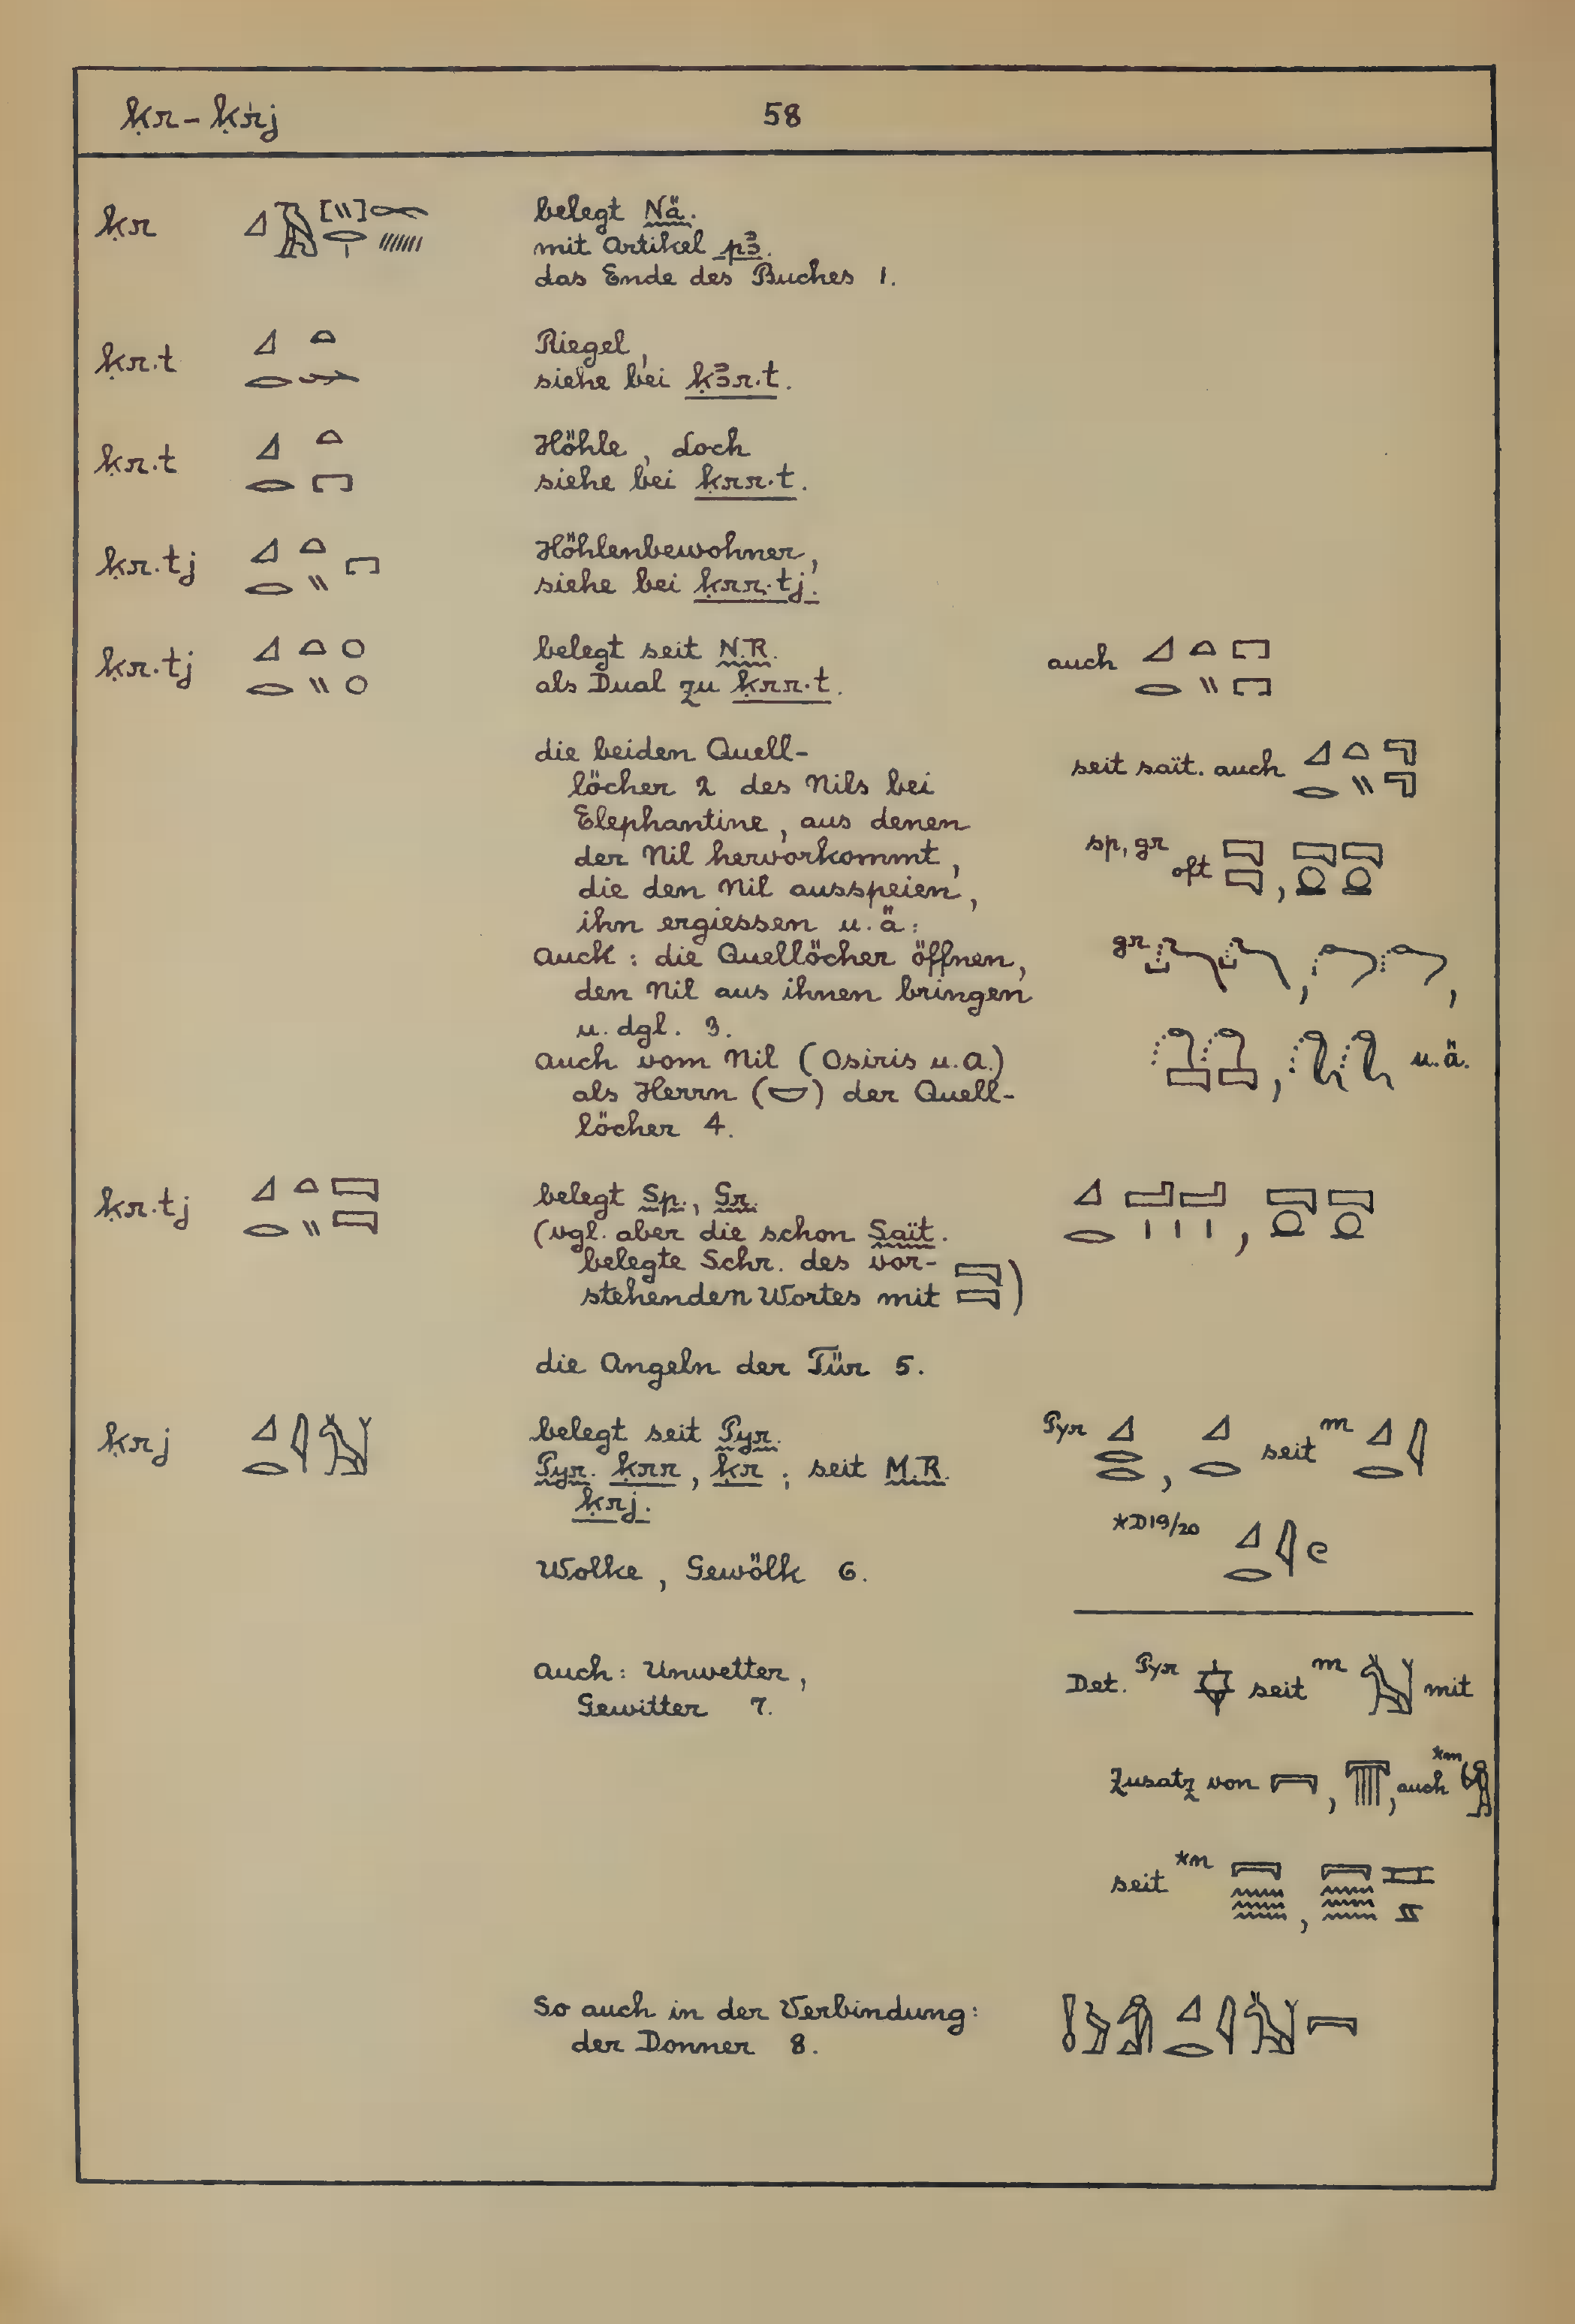 ḳr – ḳrj 58
ḳr belegt Nä.
mit Artikel pꜣ.
das Ende des Buches 1.
ḳr.t Riegel,
siehe bei ḳꜣr.t.
ḳr.t Höhle, doch
siehe bei ḳrr.t.
ḳr.tj Höhlenbewohner,
siehe bei ḳrr.tj.
ḳr.tj belegt seit N.R. auch
als Dual zu ḳrr.t.
die beiden Quell-
löcher 2 des Nils bei
Elephantine, aus denen
der Nil hervorkommt,
die den Nil ausspeien,
ihn ergiessen u.ä:
auch: die Quellöcher öffnen,
den Nil aus ihnen bringen
u. dgl. 3.
auch vom Nil (Osiris u.a.)
als Herrn (𓎟) der Quell-
löcher 4.
seit saït. auch
sp, gr
oft
gr
u.ä.
ḳr.tj belegt Sp., Gr.
(vgl. aber die schon Saït.
belegte Schr. des vor-
stehenden Wortes mit )
die Angeln der Tür 5.
ḳrj belegt seit Pyr.
Pyr. ḳrr, ḳr; seit M.R.
ḳrj.
Wolke, Gewölk 6.
Pyr , seit m
*D19/20
auch: Unwetter,
Gewitter 7.
Det. Pyr seit m mit
Zusatz von , , auch *m
seit *n ,
So auch in der Verbindung:
der Donner 8.